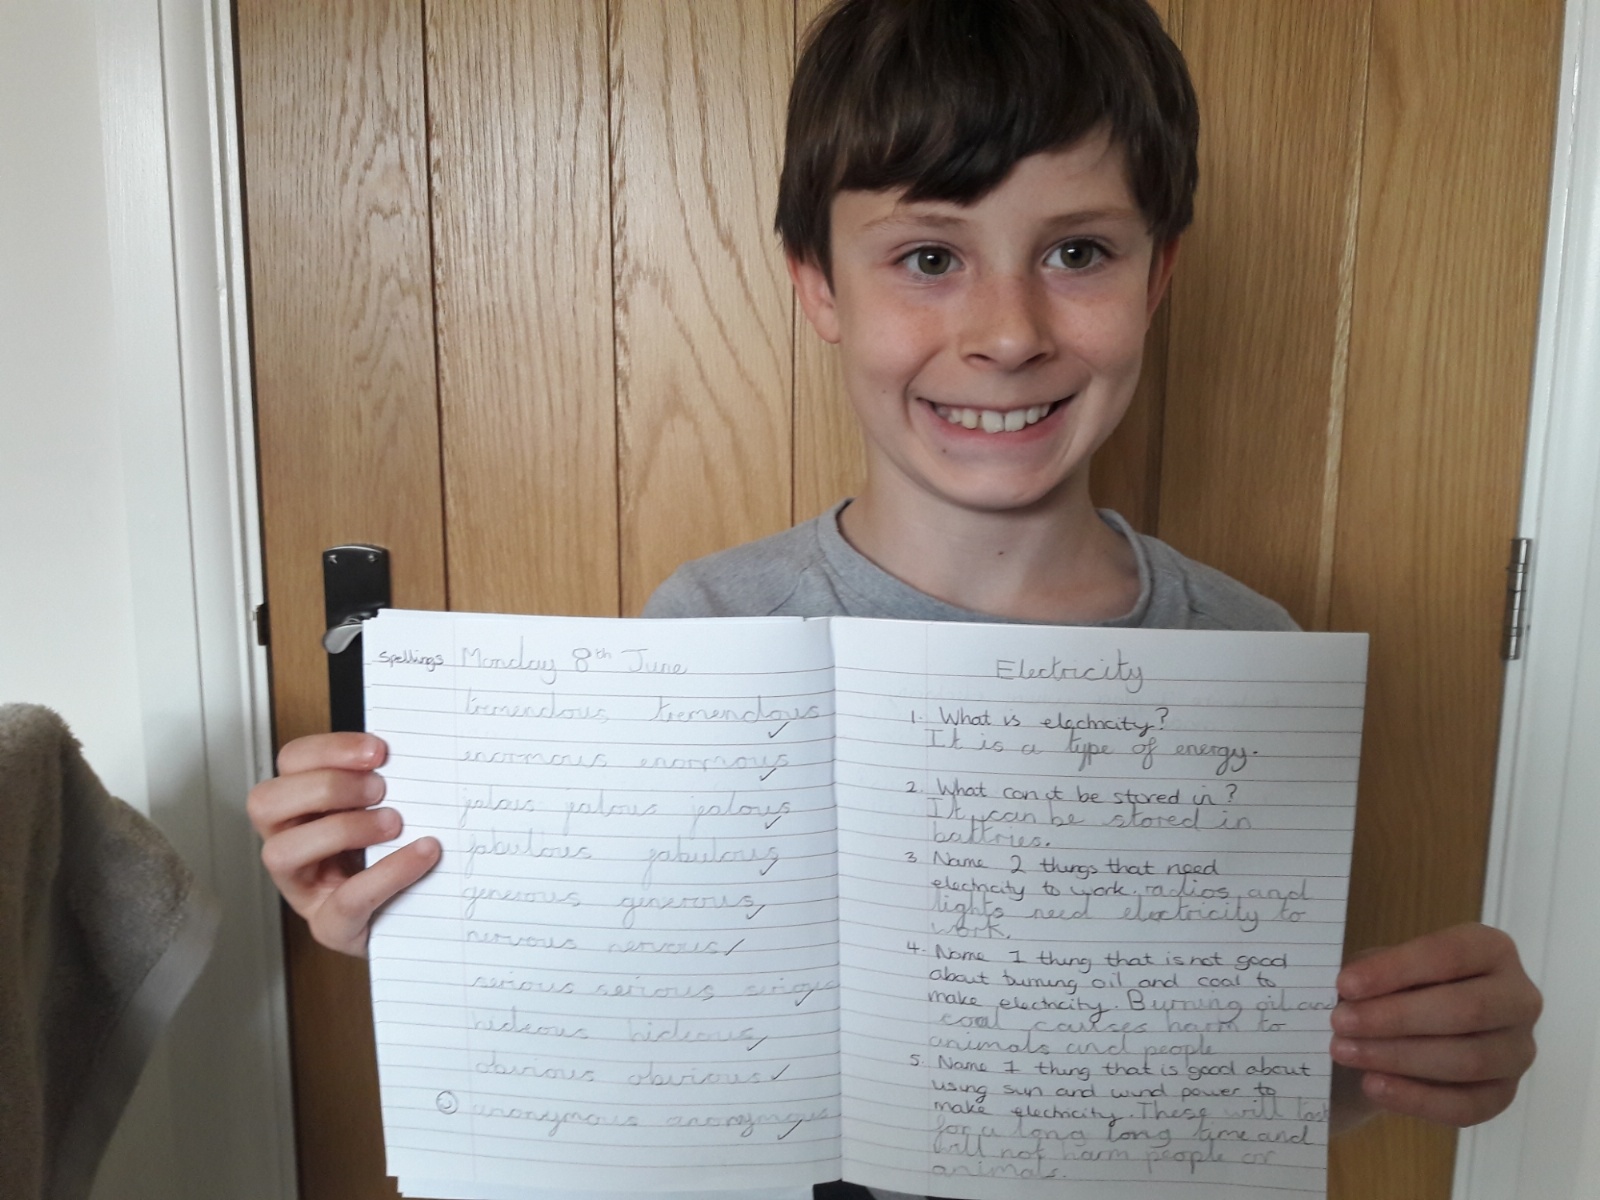 Spellings Monday 8th June
tremendous tremendous
enormous enormous
jalous jalous jealous
fabulous fabulous
generous generous
nervous nervous
serious serious
hideous hideous
obvious obvious
anonymous anonymous
Electricity
1. What is electricity?
It is a type of energy.
2. What can it be stored in?
It can be stored in
battries.
3. Name 2 things that need
electricity to work. radios and
lights need electricity to
work.
4. Name 1 thing that is not good
about burning oil and coal to
make electricity. Burning oil and
coal causes harm to
animals and people
5. Name 1 thing that is good about
using sun and wind power to
make electricity. These will last
for a long long time and
will not harm people or
animals.